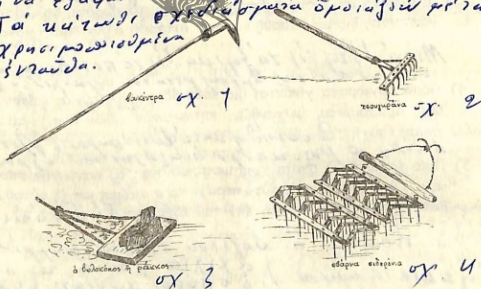 Τά κάτωθι σχεδιάσματα ὁμοιάζουν μέ τά
χρησιμοποιούμενα
ἐνταῦθα.
βουκέντρα σχ. 1
τσουγκράνα σχ. 2
ὁ βωλοκόπος ἤ σχ. 3
σβάρνα σιδερένια σχ. 4